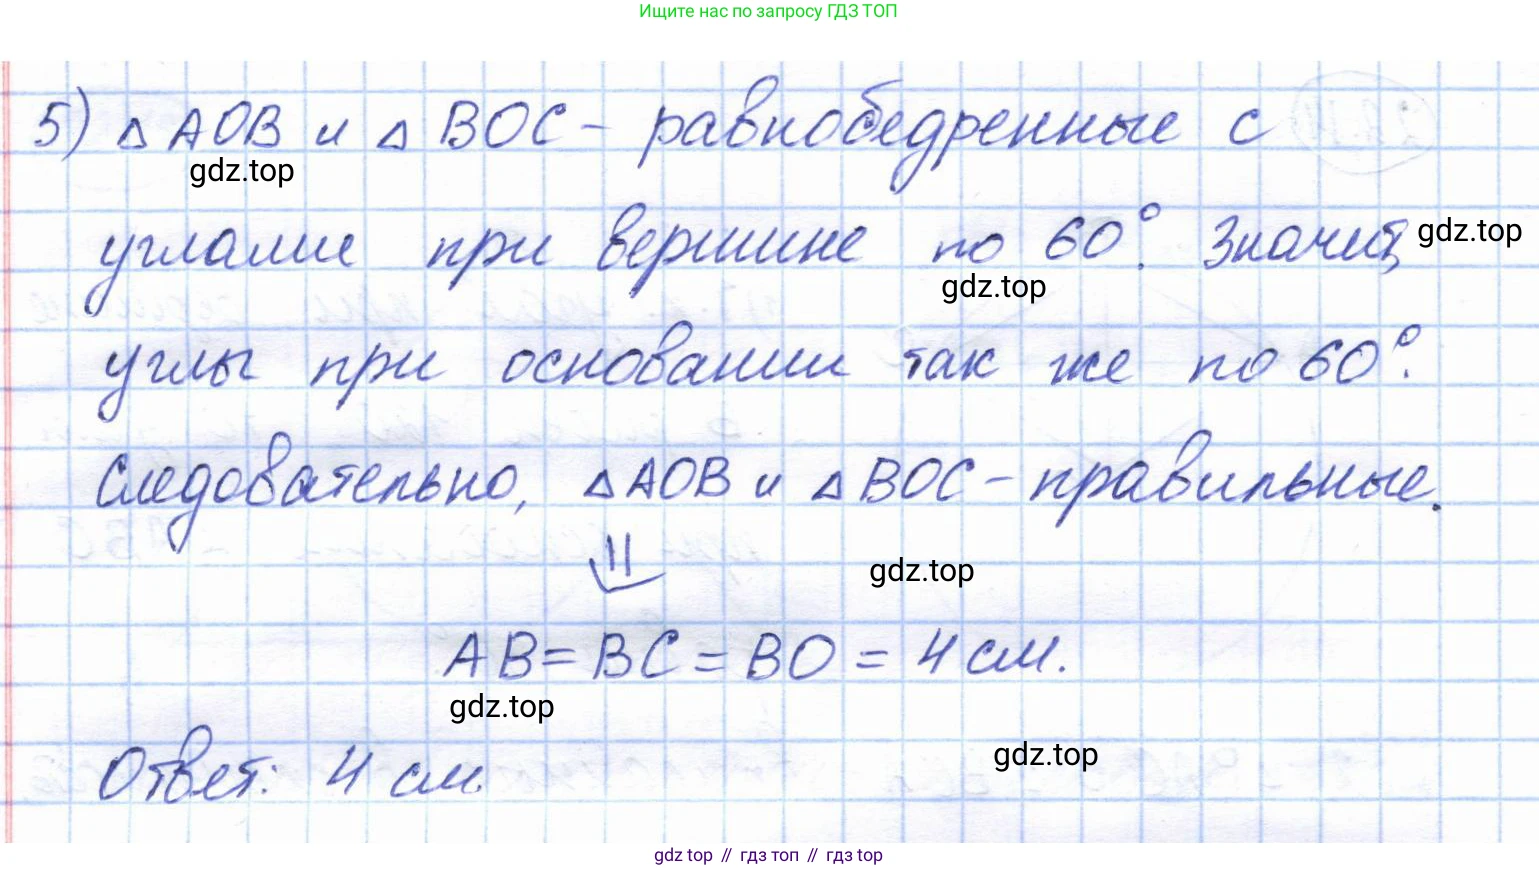 Ищите нас по запросу ГДЗ ТОП
5) △ AOB и △ BOC – равнобедренные с
gdz.top
углами при вершине по 60°. Значит, gdz.top
gdz.top
углы при основании так же по 60°.
Следовательно, △ AOB и △ BOC – правильные.
⇓
gdz.top
AB = BC = BO = 4 см.
gdz.top
gdz.top
Ответ: 4 см.
gdz top // гдз топ // гдз top